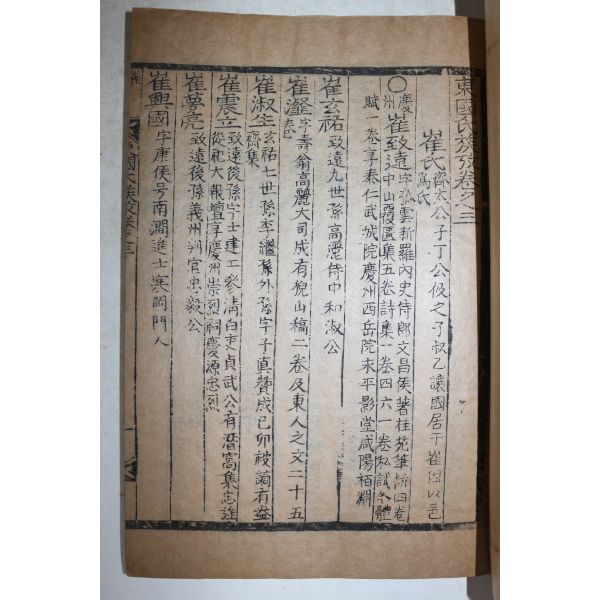 東國氏族攷卷之三
崔氏 齊太公子丁公伋之子叔乙讓國居于崔因以邑
爲氏
慶州 崔致遠 字孤雲新羅內史侍郎文昌侯著桂苑筆耕四卷
中山覆匱集五卷詩集一卷四六一卷私試今體
賦一卷享泰仁武城院慶州西岳院永平影堂咸陽栢淵
崔玄祐 致遠九世孫高麗侍中和淑公
崔瀣 字壽翁高麗大司成有猊山稿二卷及東人之文二十五卷
崔淑生 玄祐七世孫李繼孫外孫字子真贊成己卯被謫有益
齋集
崔震立 致遠後孫字士建工參清白吏貞武公有潛窩集忠逵
從祀大報壇享慶州崇烈祠慶源忠烈
崔夢亮 致遠後孫義州判官忠毅公
崔興國 字康侯号南澗進士寒岡門人